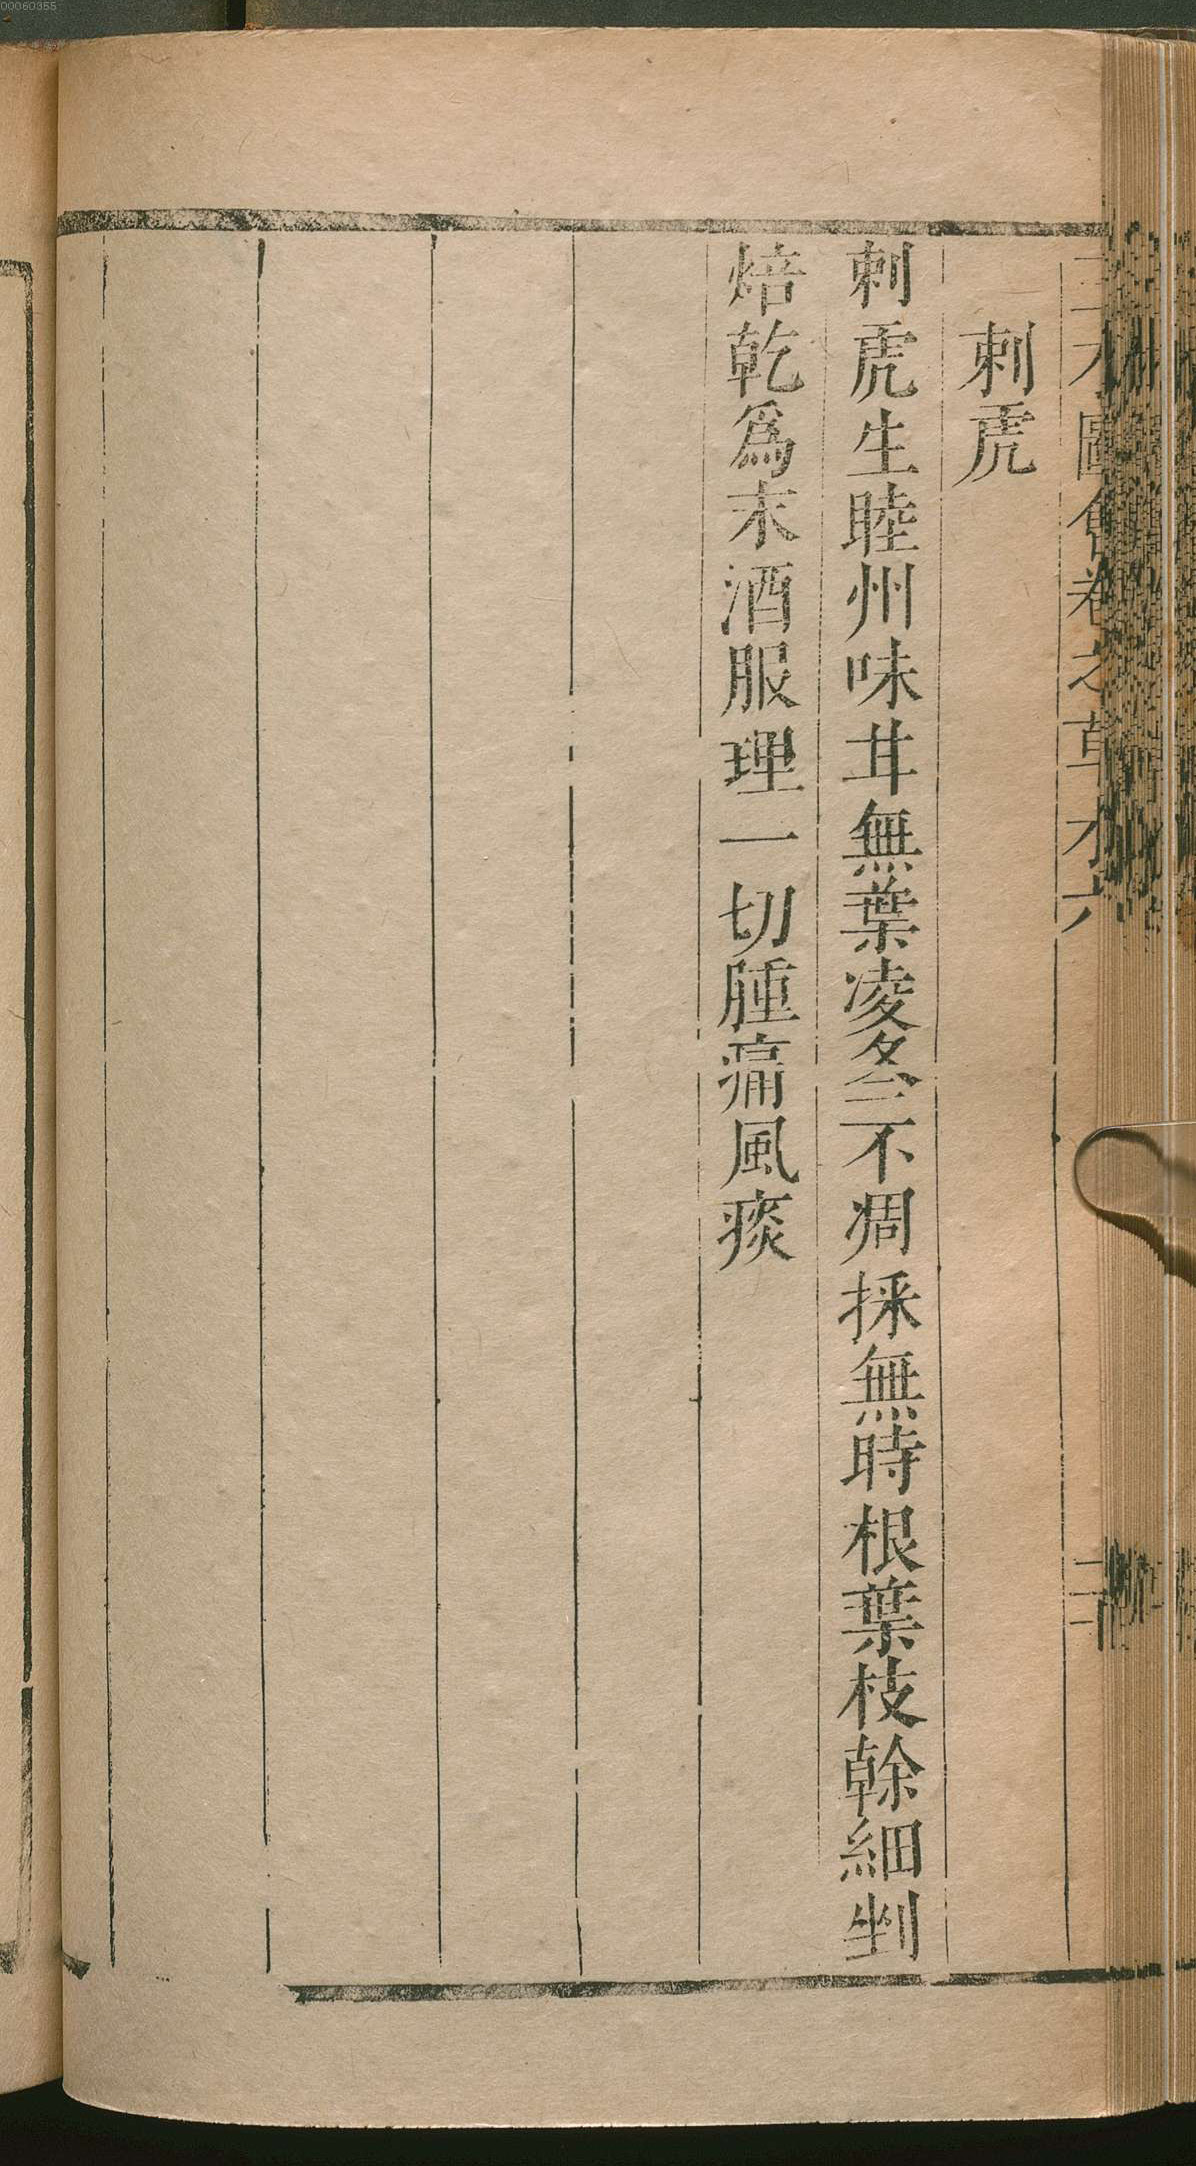 00060355
圖會卷之草木六
刺虎
刺虎生睦州味甘無葉凌冬不凋採無時根葉枝幹細剉
焙乾爲末酒服理一切腫痛風痰